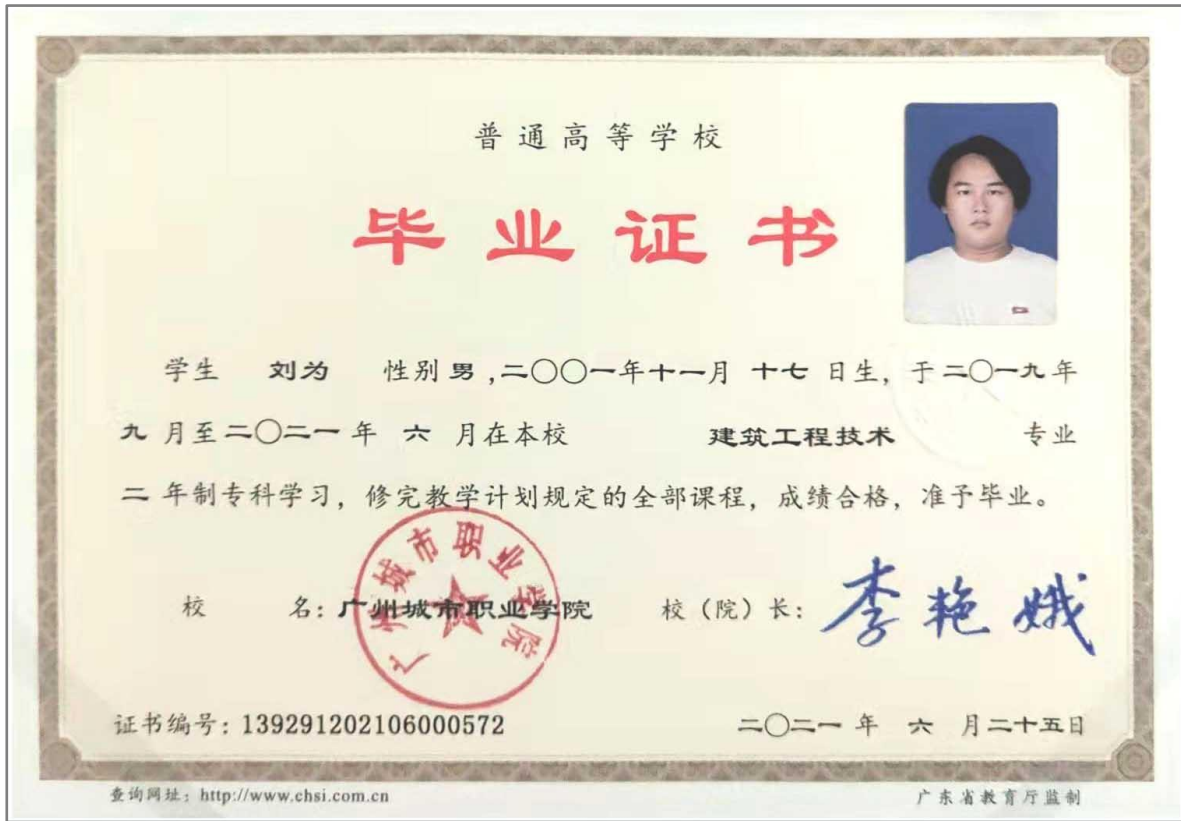 普通高等学校
毕业证书
学生 刘为 性别 男 ,二〇〇一年十一月 十七 日生, 于二〇一九年
九 月至二〇二一 年 六 月在本校 建筑工程技术 专业
二 年制专科学习, 修完教学计划规定的全部课程, 成绩合格, 准予毕业。
广州城市职业学院
校 名: 广州城市职业学院 校(院)长: 李艳娥
证书编号: 139291202106000572 二〇二一 年 六 月二十五日
查询网址: http://www.chsi.com.cn 广东省教育厅监制